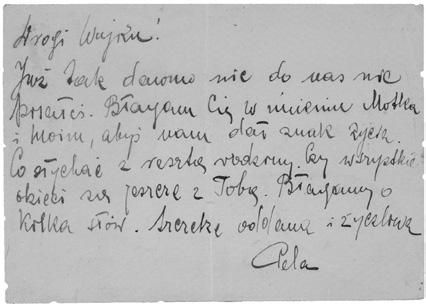 Drogi Wujku!
Już tak dawno nic do nas nie
pisałeś. Błagam Cię w imieniu Motka
i moim, abyś nam dał znak życia.
Co słychać z resztą rodziny. Czy wszystkie
dzieci są jeszcze z Tobą. Błagamy o
kilka słów. Szczerze oddana i życzliwa
Cela